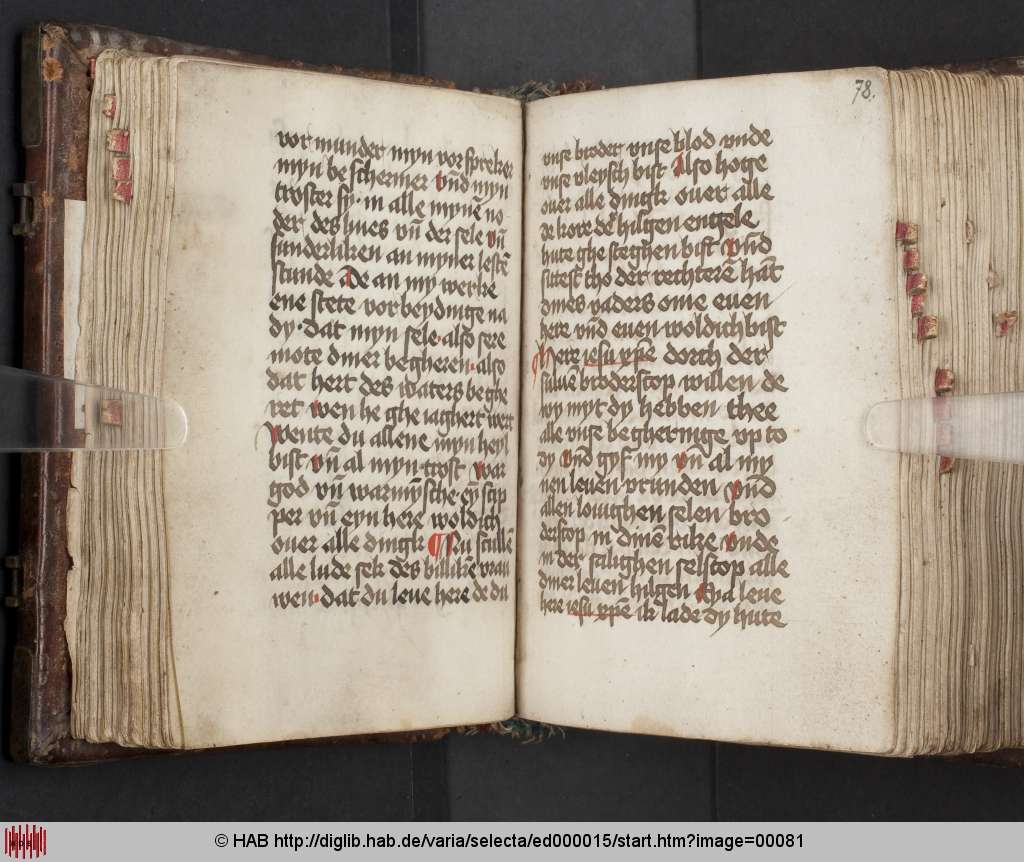 vor munder myn vorspreker
myn beschermer vnd myn
troster sy · in alle mynē no
der des liues vn̄ der sele vn̄
sunderliken an myner lestē
stunde Ale an my werke
ene stete vorbeydinge na
dy · dat myn sele · also sere
mote diner begheren · also
dat hert des waters beghe
ret wen he ghe iaghert wert
Wente du allene myn heyl
bist vn̄ al myn trost war
god vn̄ war mȳsche · eȳ scip
per vn̄ eyn here woldich
ouer alle dingk ¶ Nu scullē
alle lude sek des billikē vrau
wen · dat du leue here de du
78.
vnse broder vnse blod vnde
vnse vleysch bist Also hoge
ouer alle dingk ouer alle
de kore de hilgen engele
hute ghe steghen bist Vnd
sittest tho der rechterē hāt
dines vaders eme euen
here vnd euen woldich bist
Here iesu xpē dorch der
suluē broderscop willen de
wy myt dy hebben thee
alle vnse begheringe vp to
dy vnd gyf my vn̄ al my
nen leuen vrunden vnd
allen louighen selen bro
derscop in dinē rike vnde
in der salighen selscop alle
diner leuen hilgen Eya leue
here iesu xpē ik lade dy hute
© HAB http://diglib.hab.de/varia/selecta/ed000015/start.htm?image=00081